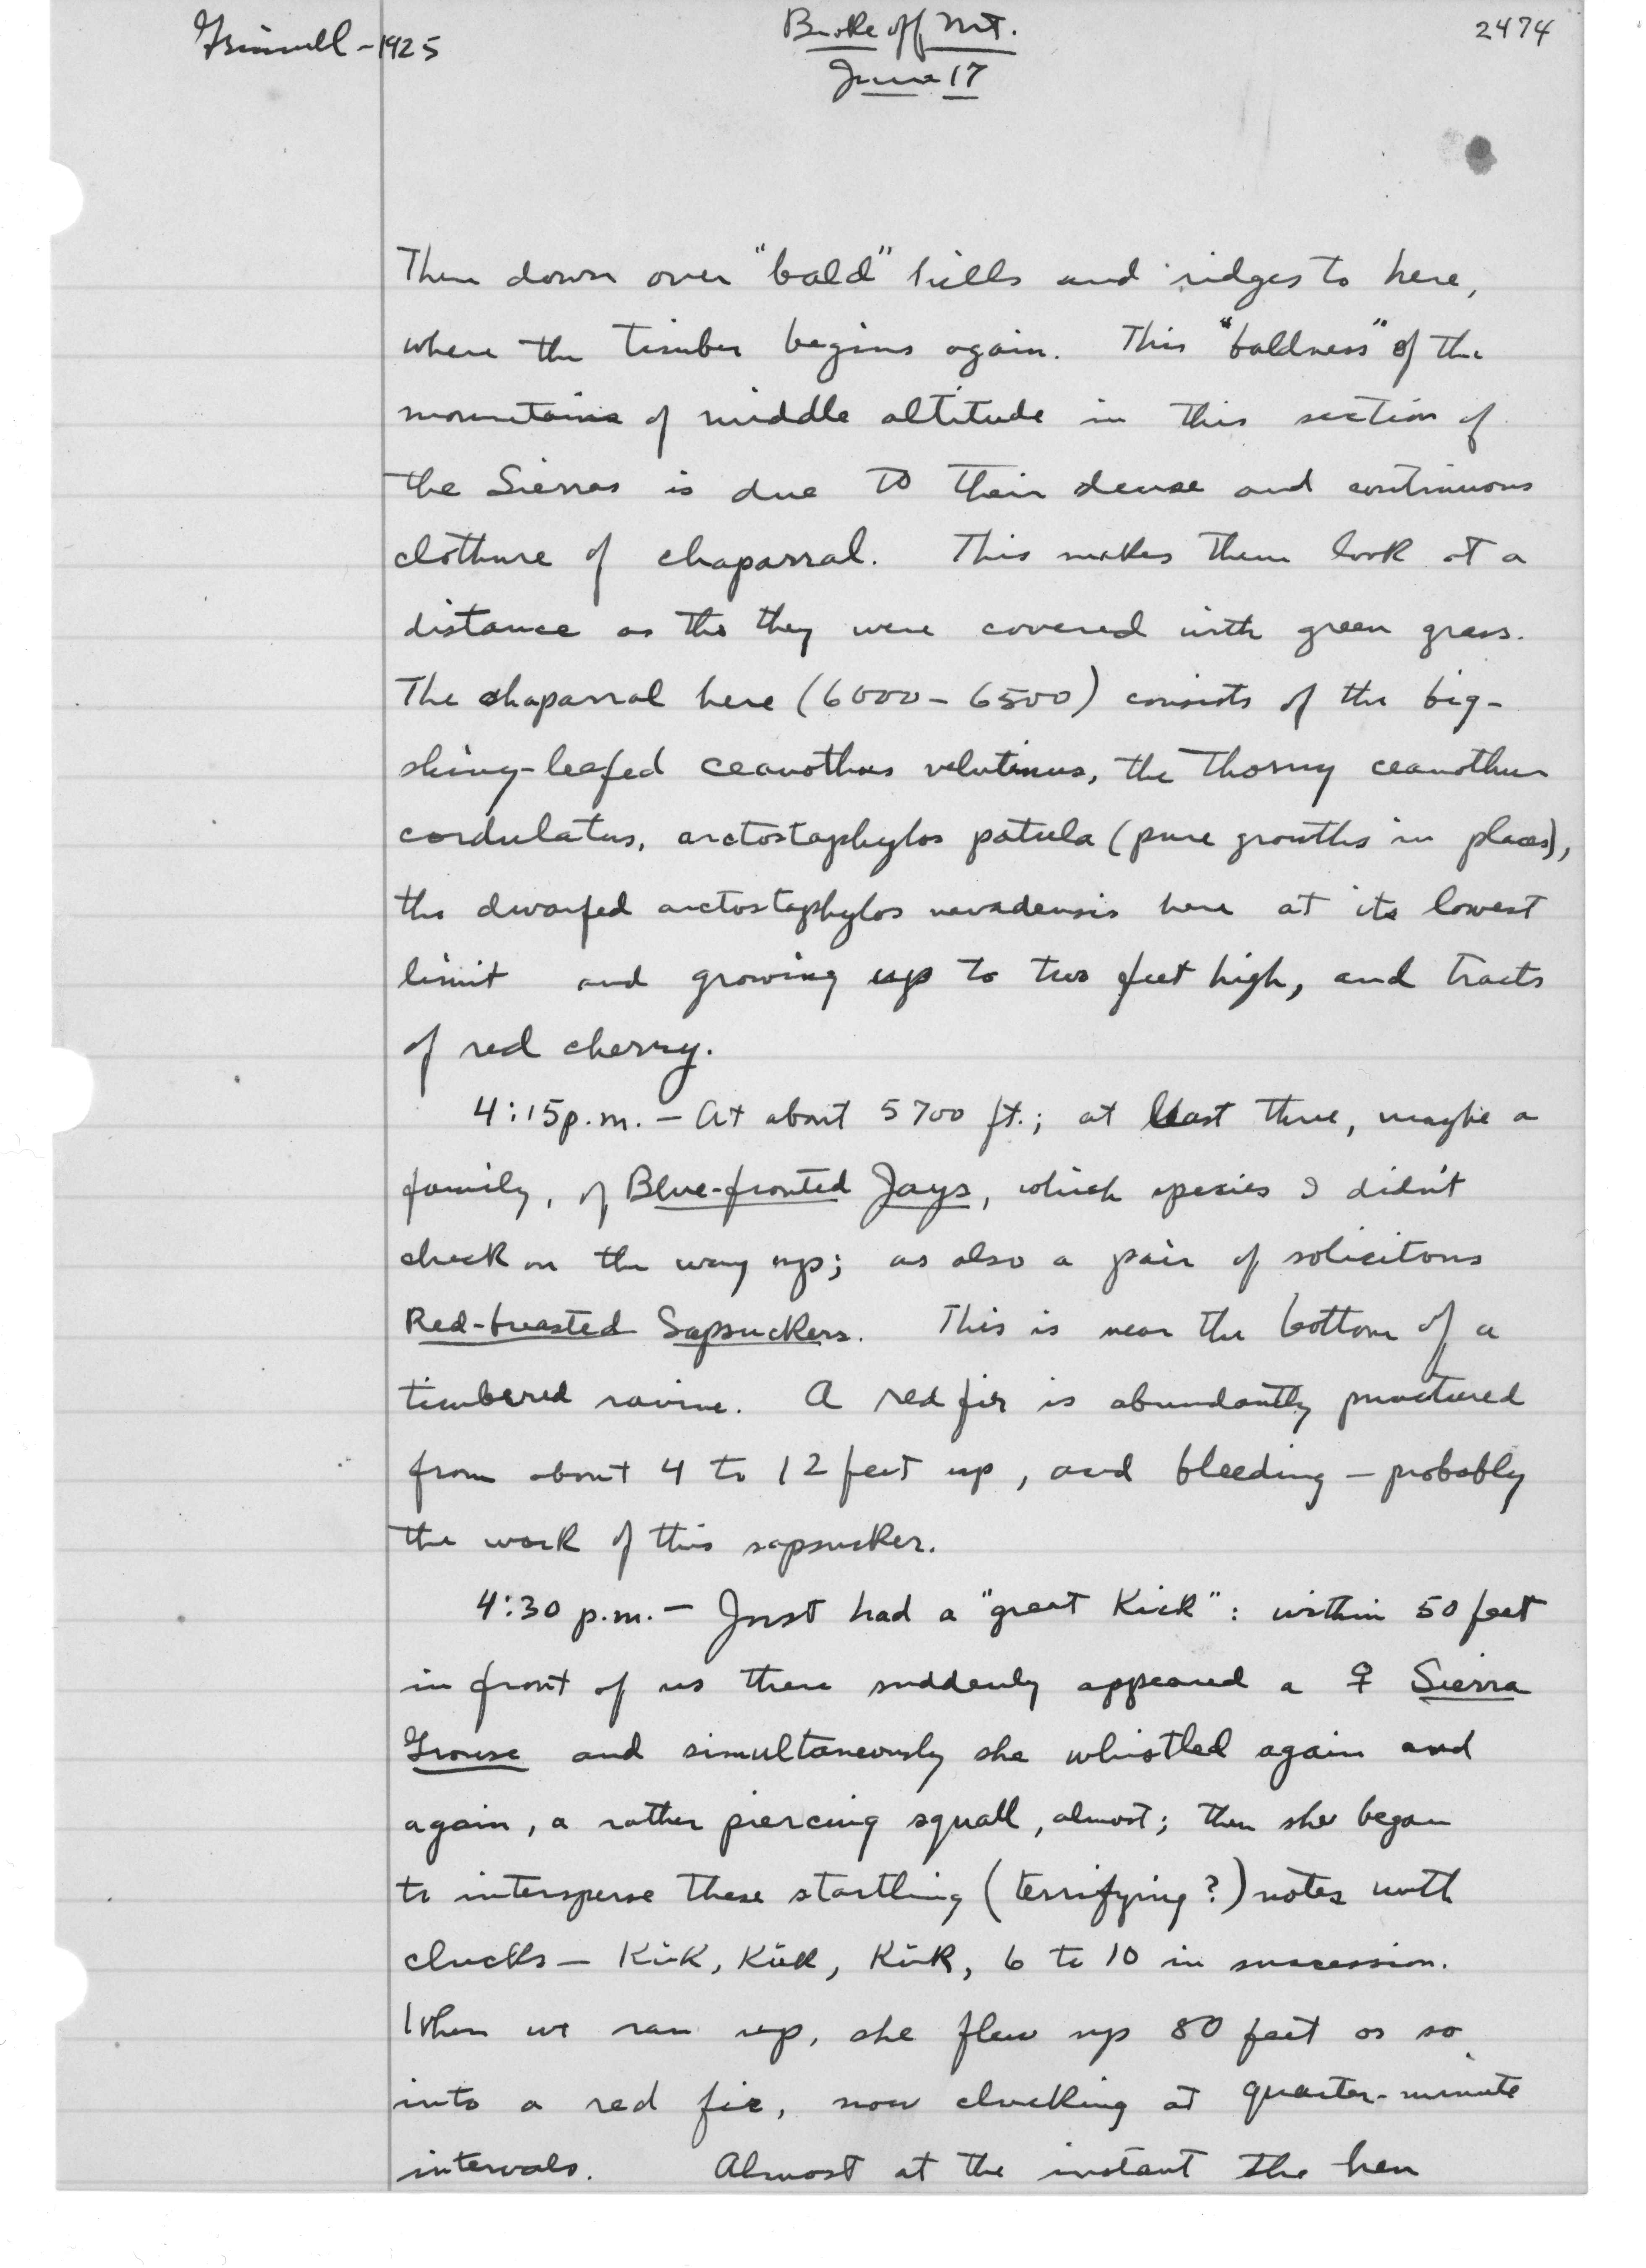 Grinnell - 1925
Broke off Mt.
2474
June 17
Then down over "bald" hills and ridges to here,
where the timber begins again. This "baldness" of the
mountains of middle altitude in this section of
the Sierras is due to their dense and continuous
clothure of chaparral. This makes them look at a
distance as tho they were covered with green grass.
The chaparral here (6000 - 6500) consists of the big-
shiny-leafed ceanothus velutinus, the thorny ceanothus
cordulatus, arctostaphylos patula (pure growths in places),
the dwarfed arctostaphylos nevadensis here at its lowest
limit and growing up to two feet high, and tracts
of red cherry.
4:15 p.m. - At about 5700 ft.; at least three, maybe a
family, of Blue-fronted Jays, which species I didn't
check on the way up; as also a pair of solicitous
Red-breasted Sapsuckers. This is near the bottom of a
timbered ravine. A red fir is abundantly punctured
from about 4 to 12 feet up, and bleeding - probably
the work of this sapsucker.
4:30 p.m. - Just had a "great kick": within 50 feet
in front of us there suddenly appeared a ♀ Sierra
Grouse and simultaneously she whistled again and
again, a rather piercing squall, almost; then she began
to intersperse these startling (terrifying?) notes with
clucks - kuk, kuk, kuk, 6 to 10 in succession.
When we ran up, she flew up 80 feet or so
into a red fir, now clucking at quarter-minute
intervals. Almost at the instant the hen